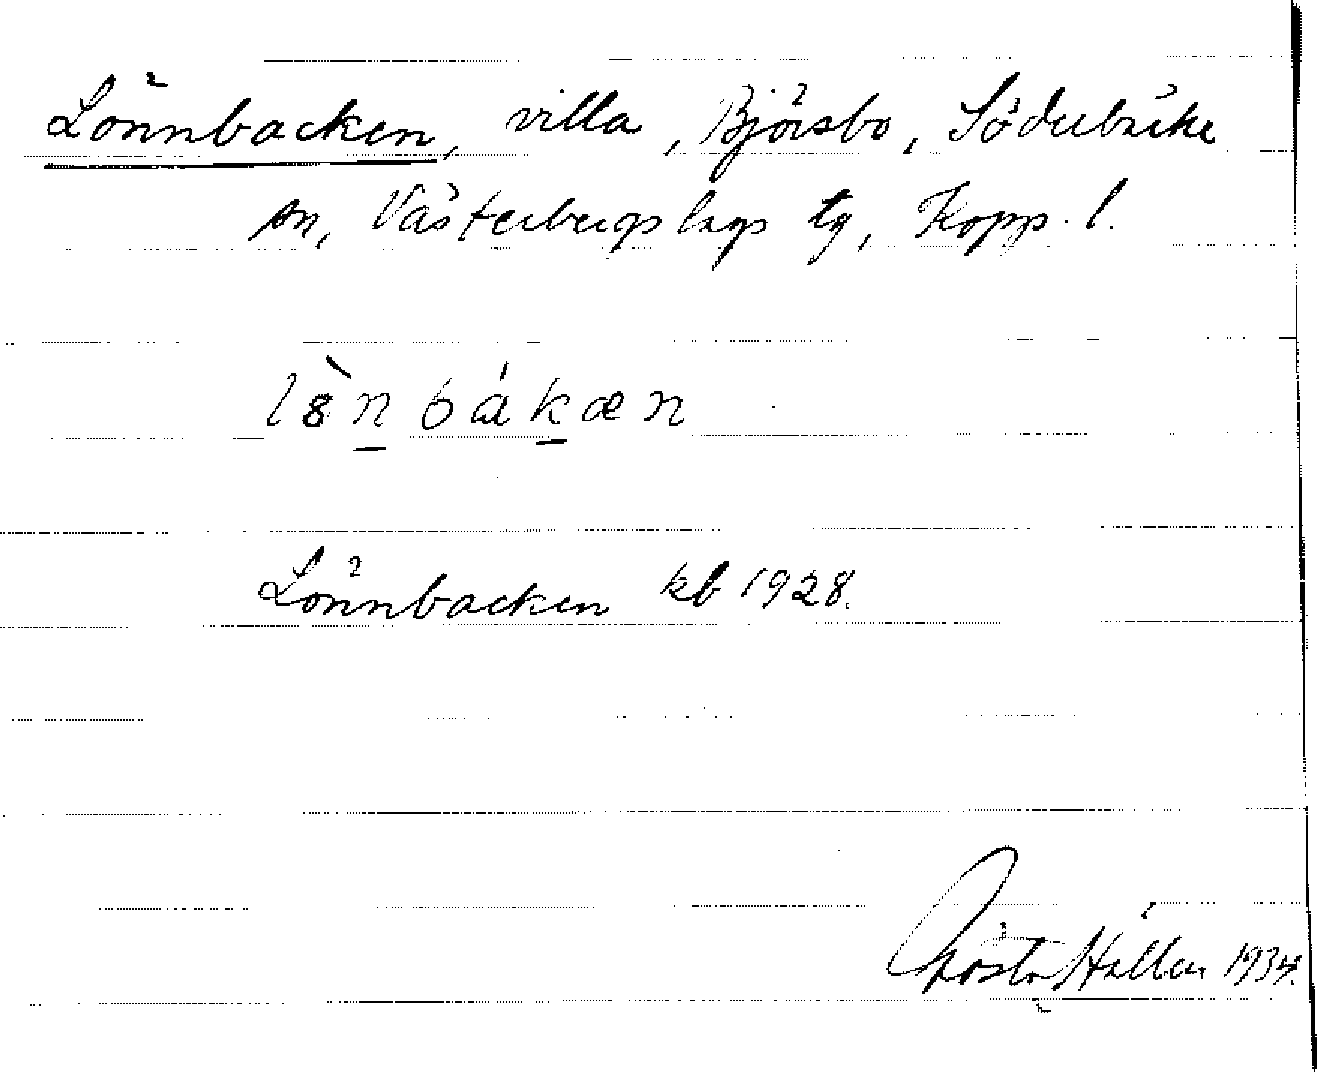 Lönnbacken, villa, Björsbo, Söderbärke
sn, Västerbergslags tg, Kopp. l.
l8̀n̲bák̲æn
Lönnbacken kb 1928.
Gösta Hållen 1934.